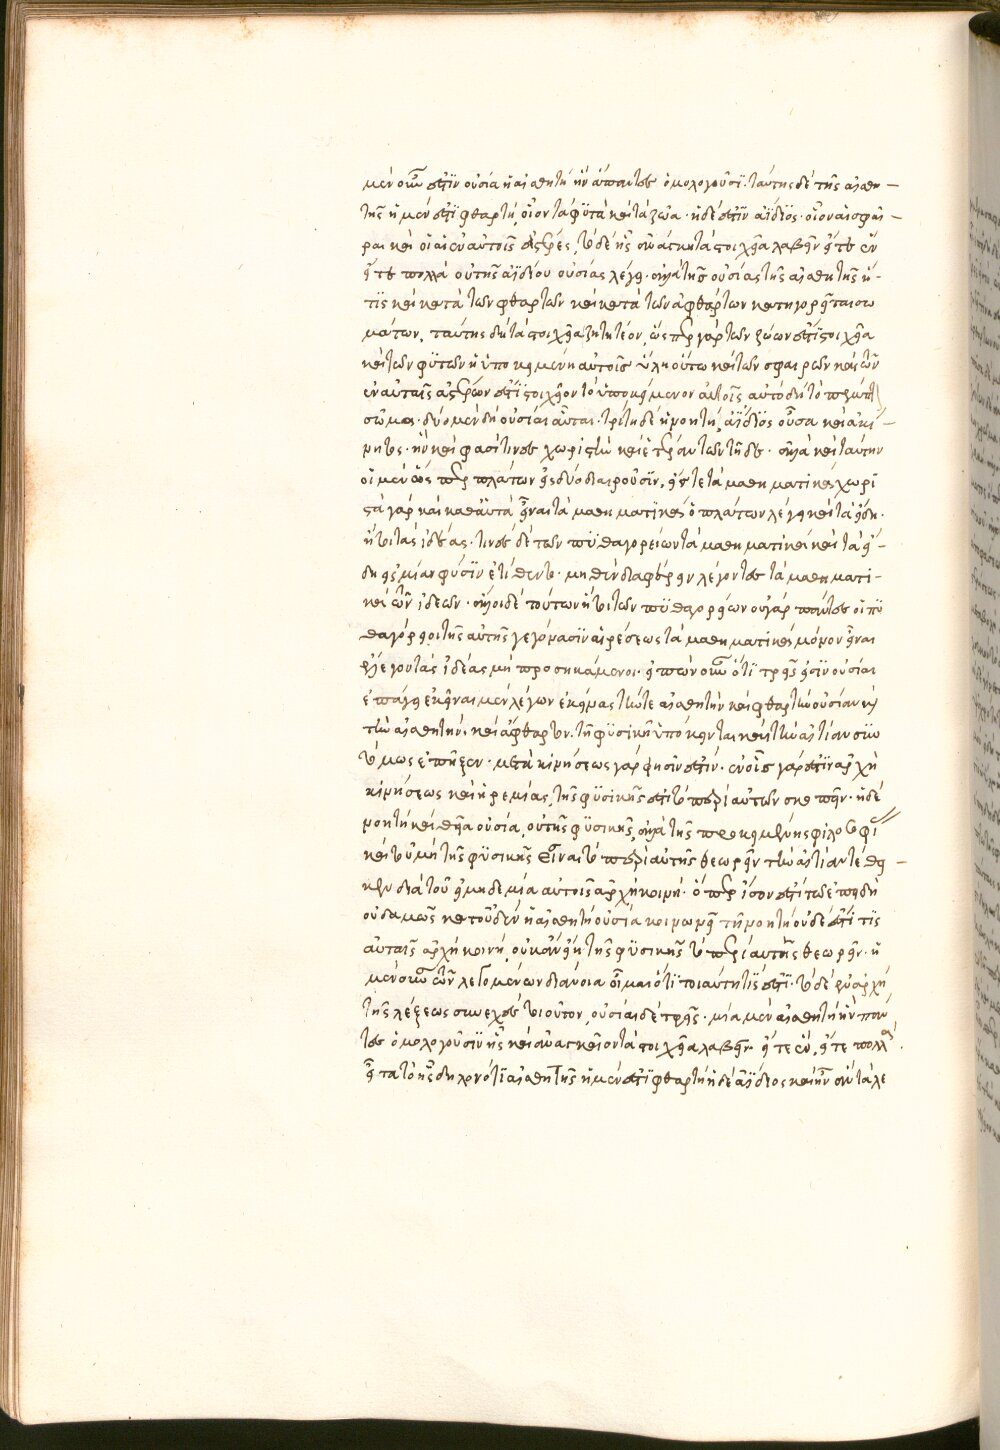 μὲν οὖν ἐστὶν οὐσία ἡ αἰσθητὴ ἣν ἅπαντες ὁμολογοῦσι· ταύτης δὲ τῆς αἰσθη-
τῆς ἡ μέν ἐστι φθαρτή, οἷον τὰ φυτὰ καὶ τὰ ζῶα· ἡ δέ ἐστὶν ἀΐδιος· οἷον αἱ σφαῖ-
ραι καὶ οἱ αἱ ἐν αὐτοῖς ἀστέρες, τὸ δὲ ἧς ἀνάγκη τὰ στοιχεῖα λαβεῖν εἴτε ἓν
εἴτε πολλὰ οὐ τῆς ἀϊδίου οὐσίας λέγει· ἀλλὰ τῆς οὐσίας τῆς αἰσθητῆς ἥ-
τις καὶ κατὰ τῶν φθαρτῶν καὶ κατὰ τῶν ἀφθάρτων κατηγορεῖται σω
μάτων, ταύτης δὴ τὰ στοιχεῖα ζητητέον, ὥσπερ γὰρ τῶν ζώων ἐστὶ στοιχεῖα
καὶ τῶν φυτῶν ἡ ὑποκειμένη αὐτοῖς ὕλη οὕτω καὶ τῶν σφαιρῶν καὶ τῶν
ἐν αὐταῖς ἀστέρων ἐστὶ στοιχεῖον τὸ ὑποκείμενον αὐτοῖς αὐτὸ δὴ τὸ πέμπτον
σῶμα· δύο μὲν δὴ οὐσίαι αὗται· τρίτη δὲ ἡ νοητή, ἀΐδιος οὖσα καὶ ἀκί-
νητος· ἣν καὶ φασί τινες χωριστὴν καὶ ἑτέραν τῶν τῇδε· ἀλλὰ καὶ ταύτην
οἱ μὲν ὥσπερ πλάτων εἰς δύο διαιροῦσιν, εἴς τε τὰ μαθηματικὰ χωρι
στὰ γὰρ καὶ καθ' αὑτὰ εἶναι τὰ μαθηματικὰ ὁ πλάτων λέγει καὶ τὰ εἴδη·
ἤτοι τὰς ἰδέας· τινὲς δὲ τῶν πυθαγορείων τὰ μαθηματικὰ καὶ τὰ εἴ-
δη εἰς μίαν φύσιν ἐτίθεντο· μηθὲν διαφέρειν λέγοντες τὰ μαθηματι-
κὰ τῶν ἰδεῶν· ἄλλοι δὲ τούτων ἤτοι τῶν πυθαγορείων οὐ γὰρ πάντες οἱ πυ
θαγόρειοι τῆς αὐτῆς γεγόνασιν αἱρέσεως τὰ μαθηματικὰ μόνον εἶναι
ἔλεγον τὰς ἰδέας μὴ προσηκάμενοι· εἰπὼν οὖν ὅτι τρεῖς εἰσὶν οὐσίαι
ἐπάγει ἐκεῖναι μὲν λέγων ἐκείνας τήν τε αἰσθητὴν καὶ φθαρτὴν οὐσίαν καὶ
τὴν αἰσθητὴν καὶ ἄφθαρτον· τῇ φυσικῇ ὑπόκεινται καὶ τὴν αἰτίαν συν
τόμως ἐπῆξεν· μετὰ κινήσεως γὰρ φησίν ἐστιν· ἐν οἷς γάρ ἐστιν ἀρχὴ
κινήσεως καὶ ἠρεμίας, τῆς φυσικῆς ἐστὶ τὸ περὶ αὐτῶν σκοπεῖν· ἡ δὲ
νοητὴ καὶ θεία οὐσία, οὐ τῆς φυσικῆς, ἀλλὰ τῆς προκειμένης φιλοσοφί
καὶ τοῦ μὴ τῆς φυσικῆς εἶναι τὸ περὶ αὐτῆς θεωρεῖν τὴν αἰτίαν τέθει-
κεν διὰ τοῦ εἰ μηδεμία αὐτοῖς ἀρχὴ κοινή· ὅπερ ἴσον ἐστὶ τῷ ἐπειδὴ
οὐδαμῶς κατ' οὐδὲν ἡ αἰσθητὴ οὐσία κοινωνεῖ τῇ νοητῇ οὐδέ ἐστί τις
αὐταῖς ἀρχὴ κοινή, οὐκ ἂν εἴη τῆς φυσικῆς τὸ περὶ αὐτῆς θεωρεῖν· ἡ
μὲν οὖν τῶν λεγομένων διάνοια οἶμαι ὅτι τοιαύτη τίς ἐστι· τὸ δὲ ἐν ἀρχῇ
τῆς λέξεως συνεχὲς τοιοῦτον, οὐσίαι δὲ τρεῖς· μία μὲν αἰσθητὴ ἣν πάν
τες ὁμολογοῦσιν ἧς καὶ ἀναγκαῖον τὰ στοιχεῖα λαβεῖν· εἴτε ἕν, εἴτε πολλά.
εἶτα τὸ ἧς δηλονότι αἰσθητῆς ἡ μέν ἐστι φθαρτὴ ἡ δὲ ἀΐδιος καὶ ἦν ἀντὶ